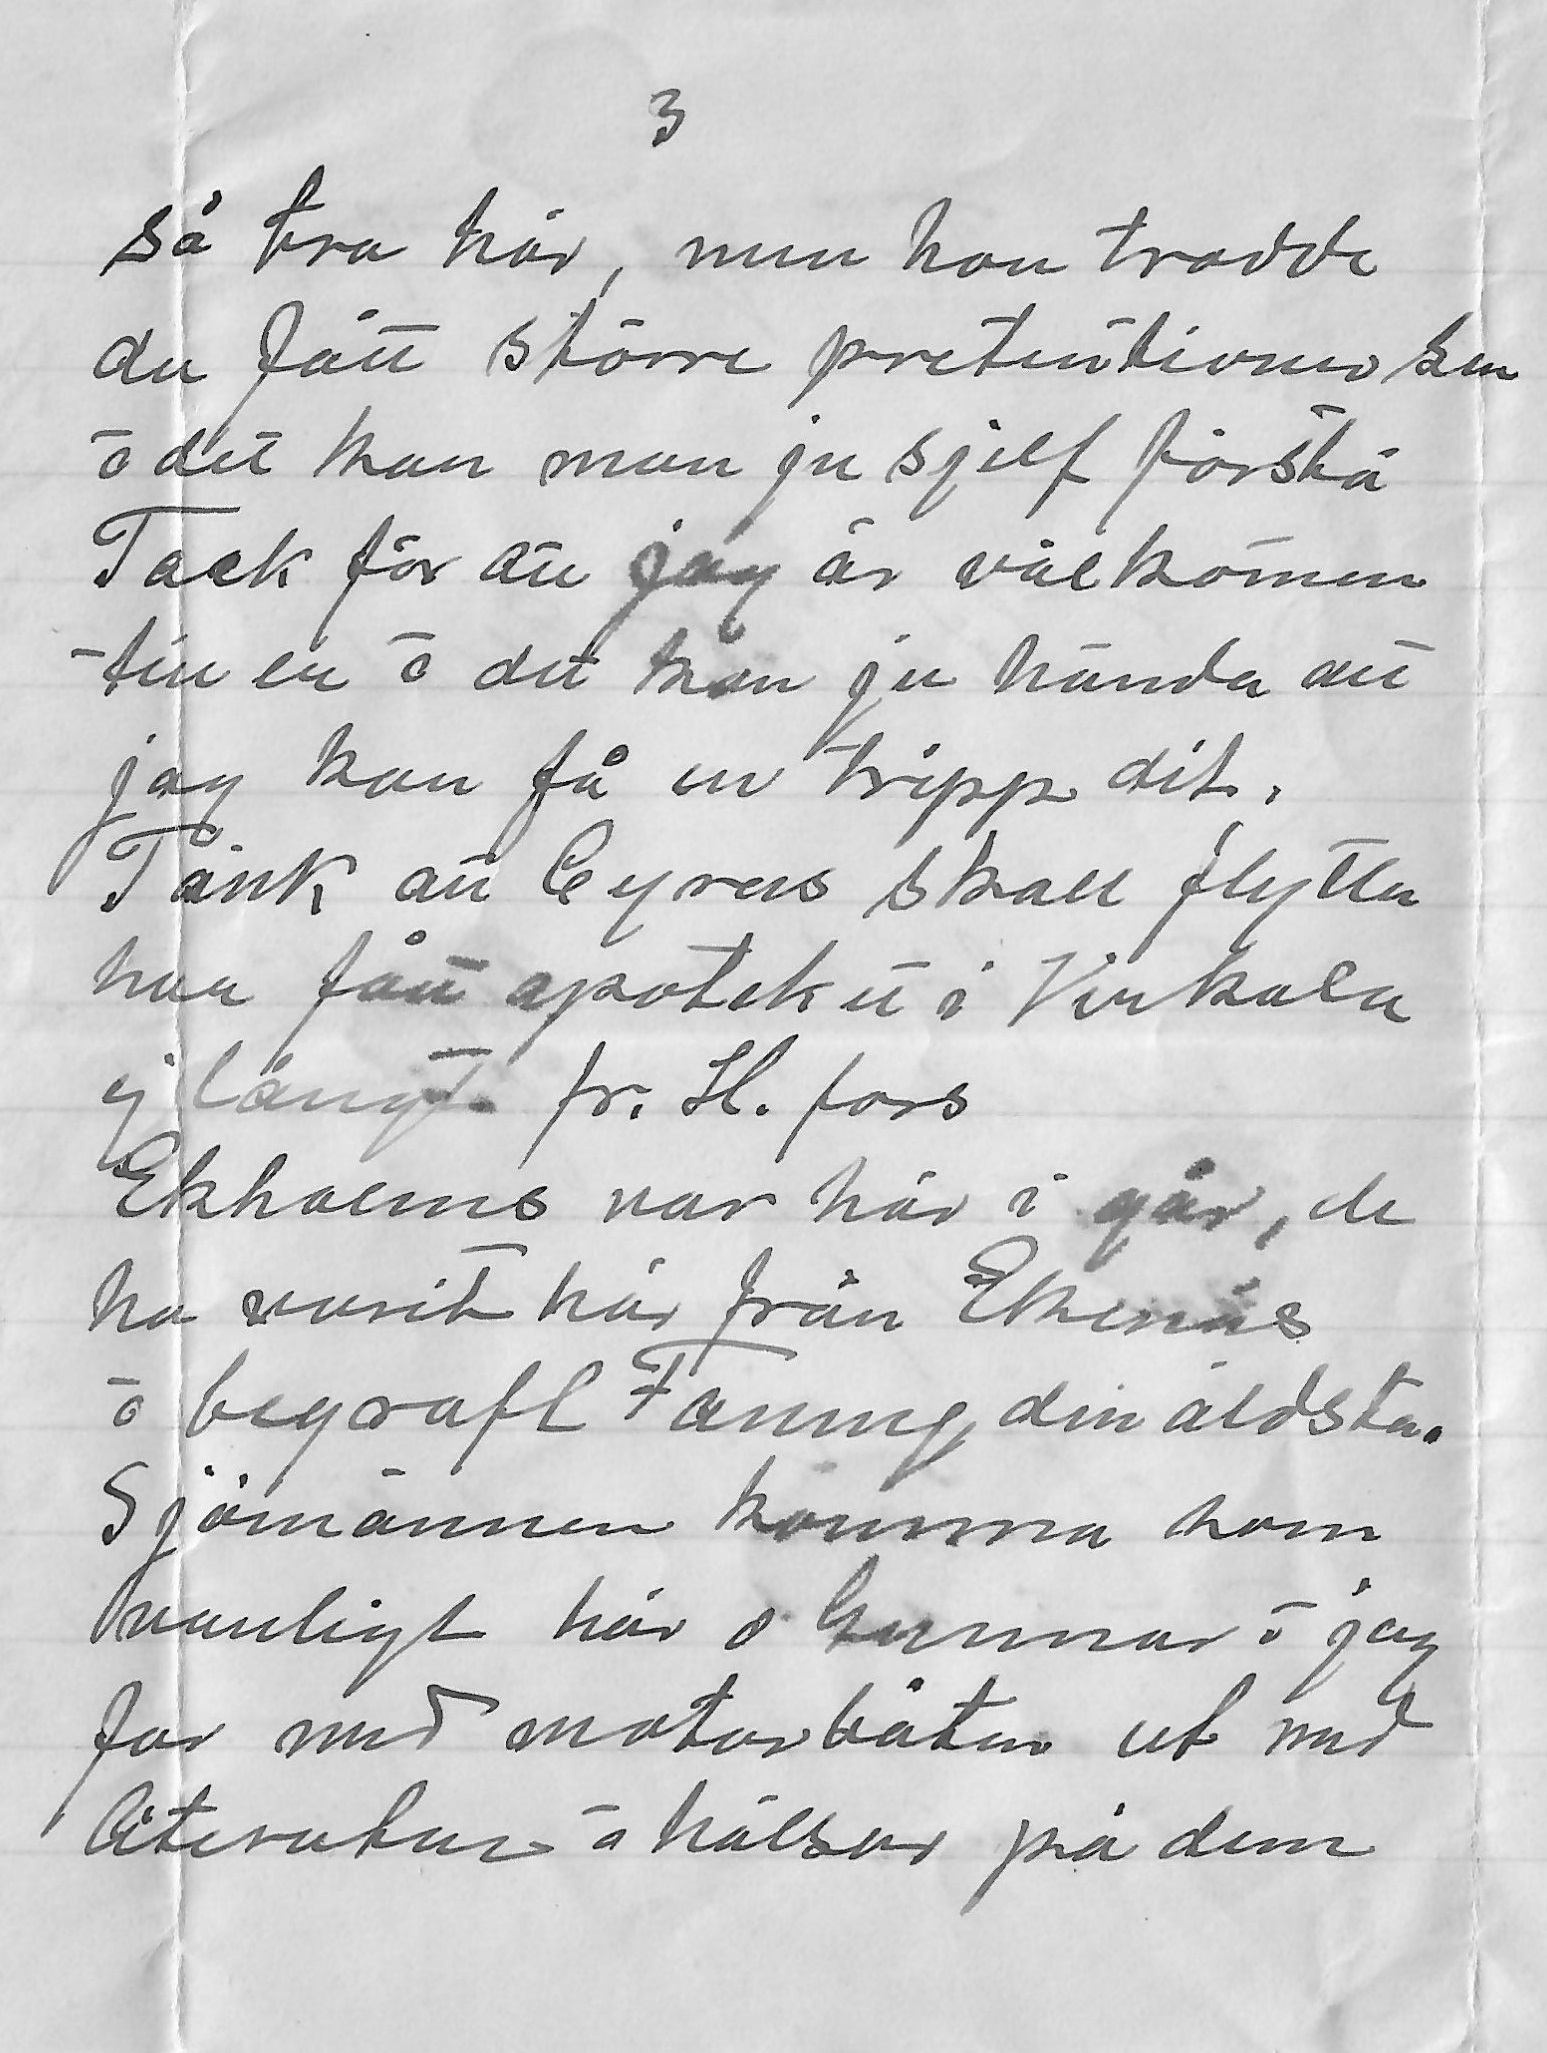 3
så bra här, men hon trodde
du fått större pretentioner sen
o det kan man ju sjelf förstå
Tack för att jag är välkommen
till er o det kan ju hända att
jag kan få en tripp dit.
Tänk att Cyrus skall flytta
har fått apoteket i Virkala
ej långt fr. H. fors
Ekholms var här i går, de
ha varit här från Ekenäs
o begraft Fanny, den äldsta.
Sjömännen komma som
vanligt här o Gunnar o jag
far med motorbåten ut med
literatur o hälsar på dem